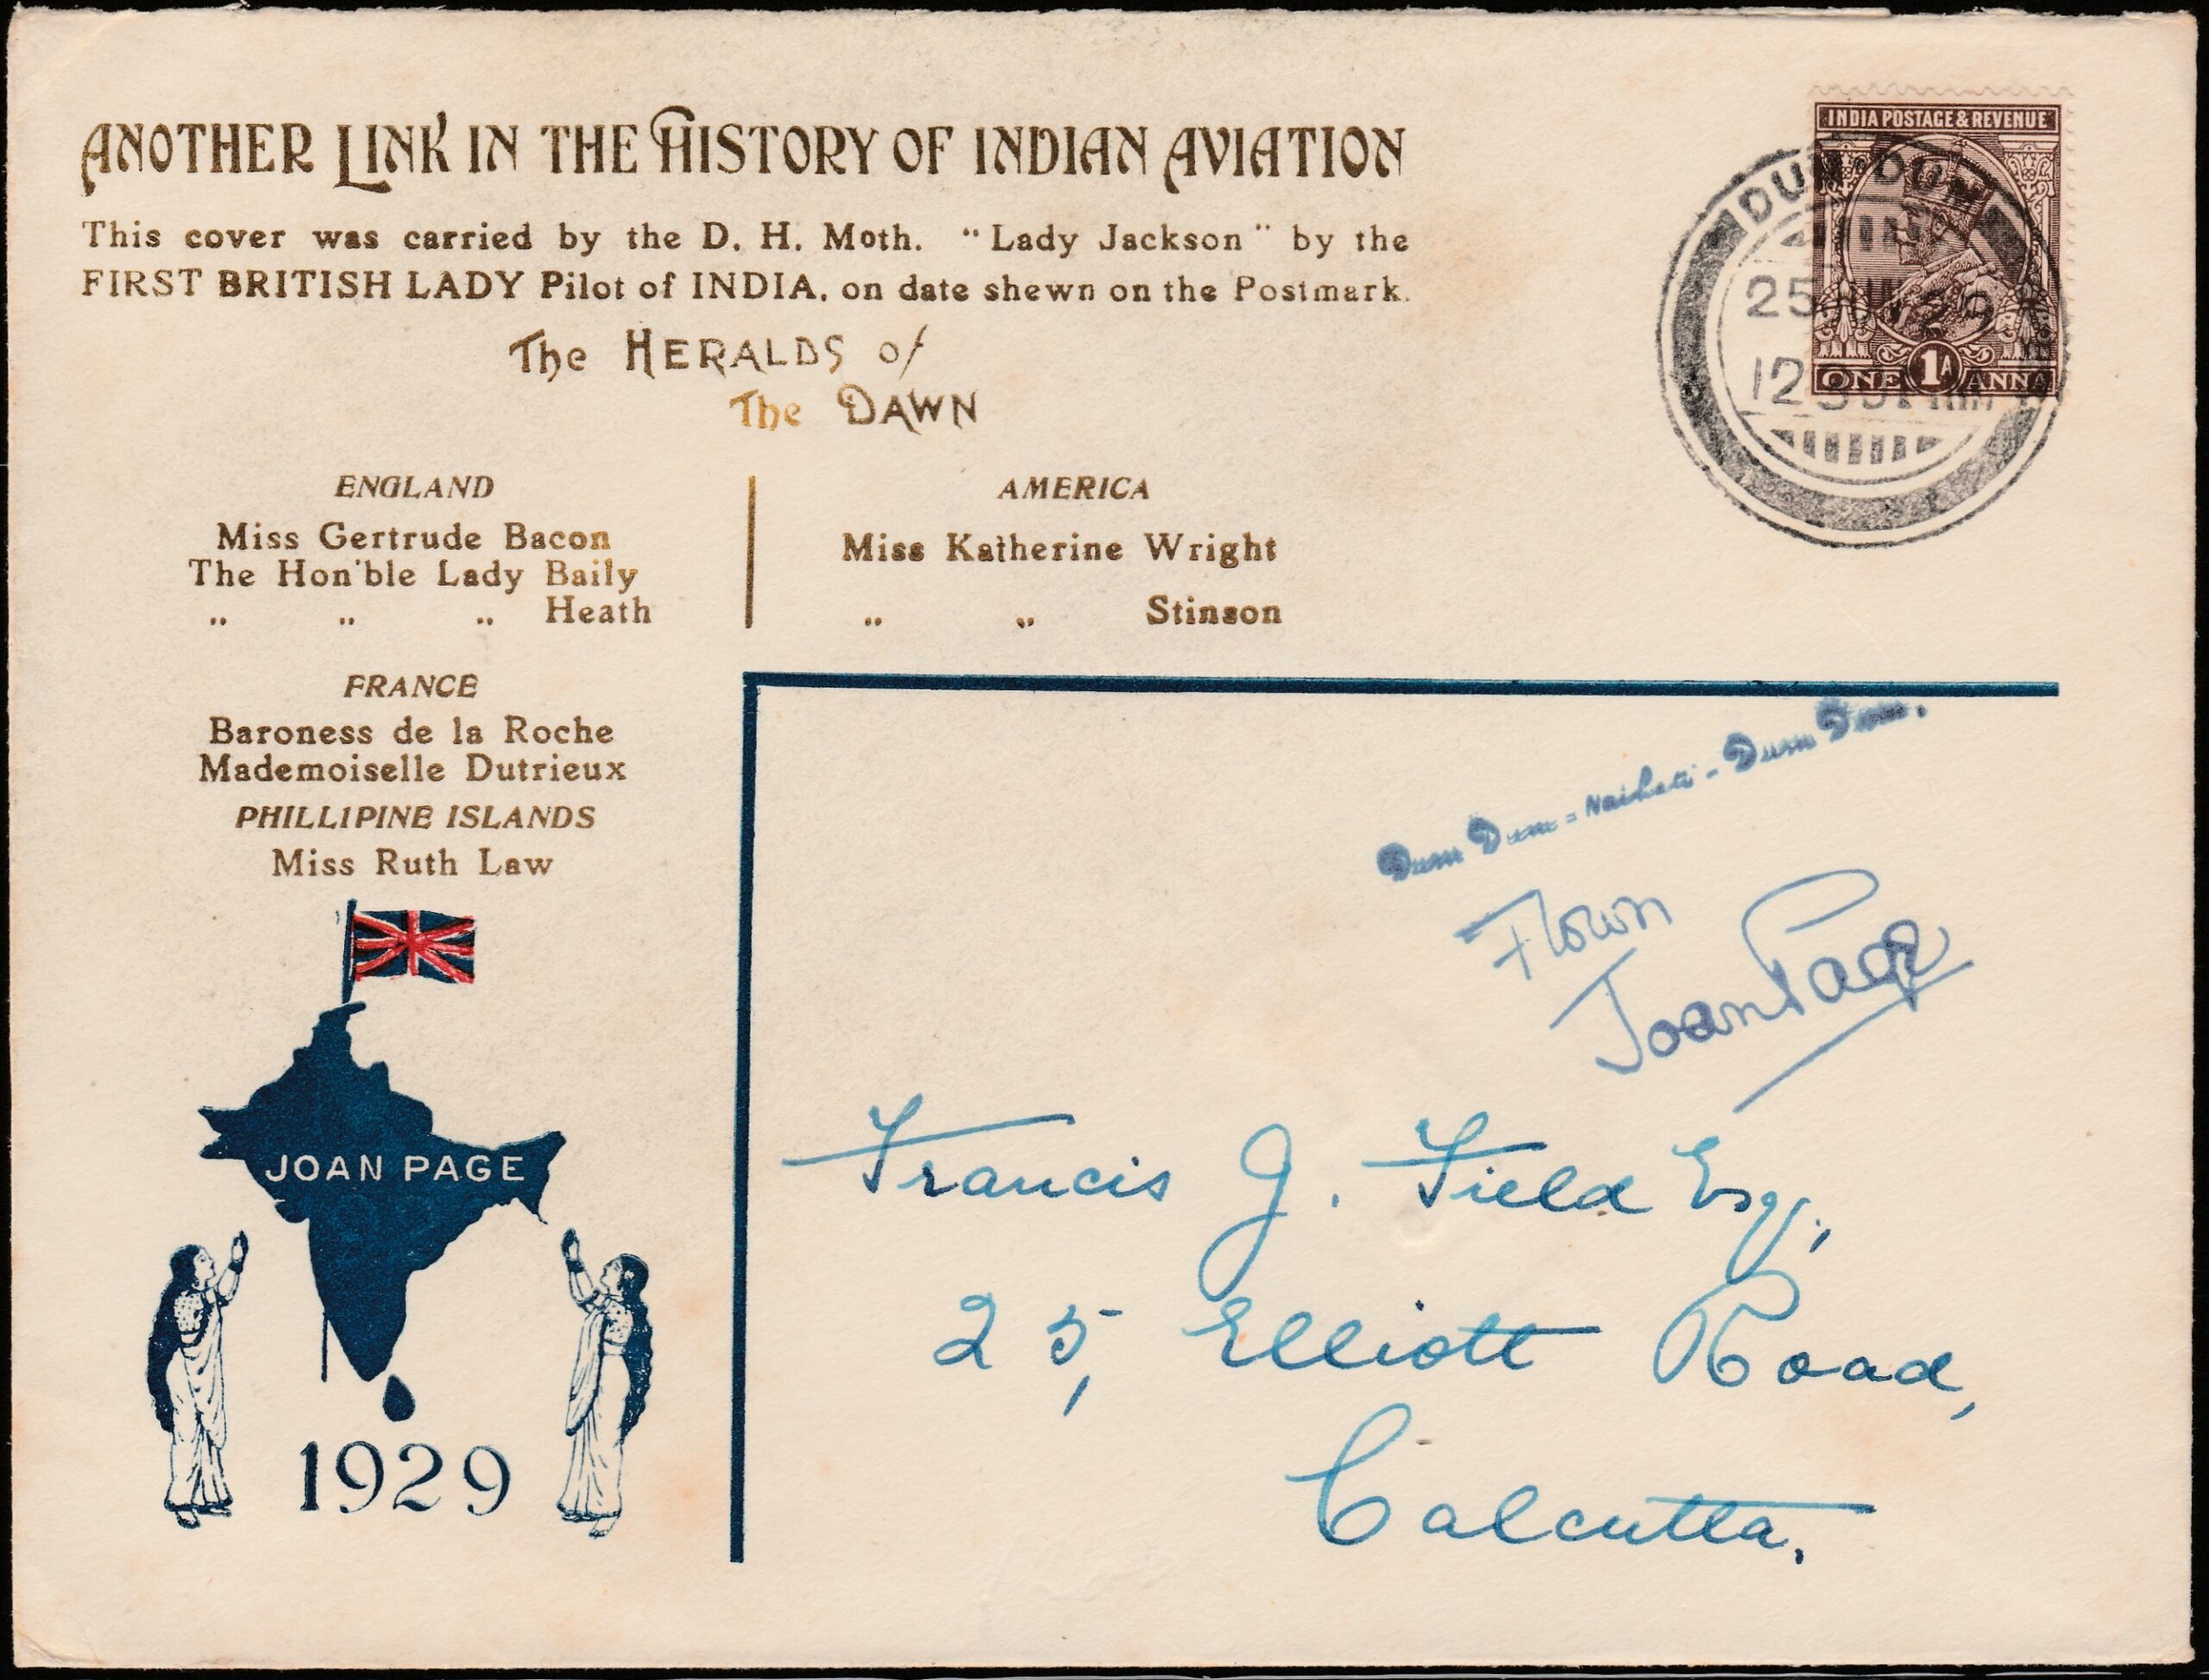 ANOTHER LINK IN THE HISTORY OF INDIAN AVIATION
This cover was carried by the D. H. Moth. "Lady Jackson" by the
FIRST BRITISH LADY Pilot of INDIA, on date shewn on the Postmark.
The HERALDS of
The DAWN
ENGLAND
Miss Gertrude Bacon
The Hon'ble Lady Baily
„ „ „ Heath
AMERICA
Miss Katherine Wright
„ „ Stinson
FRANCE
Baroness de la Roche
Mademoiselle Dutrieux
PHILLIPINE ISLANDS
Miss Ruth Law
JOAN PAGE
1929
INDIA POSTAGE & REVENUE
1A
ONE ANNA
DUM-DUM
25 29
12
Dum Dum = Naihati - Dum Dum.
Flown
Joan Page
Francis J. Field Esq.,
25, Elliott Road,
Calcutta.